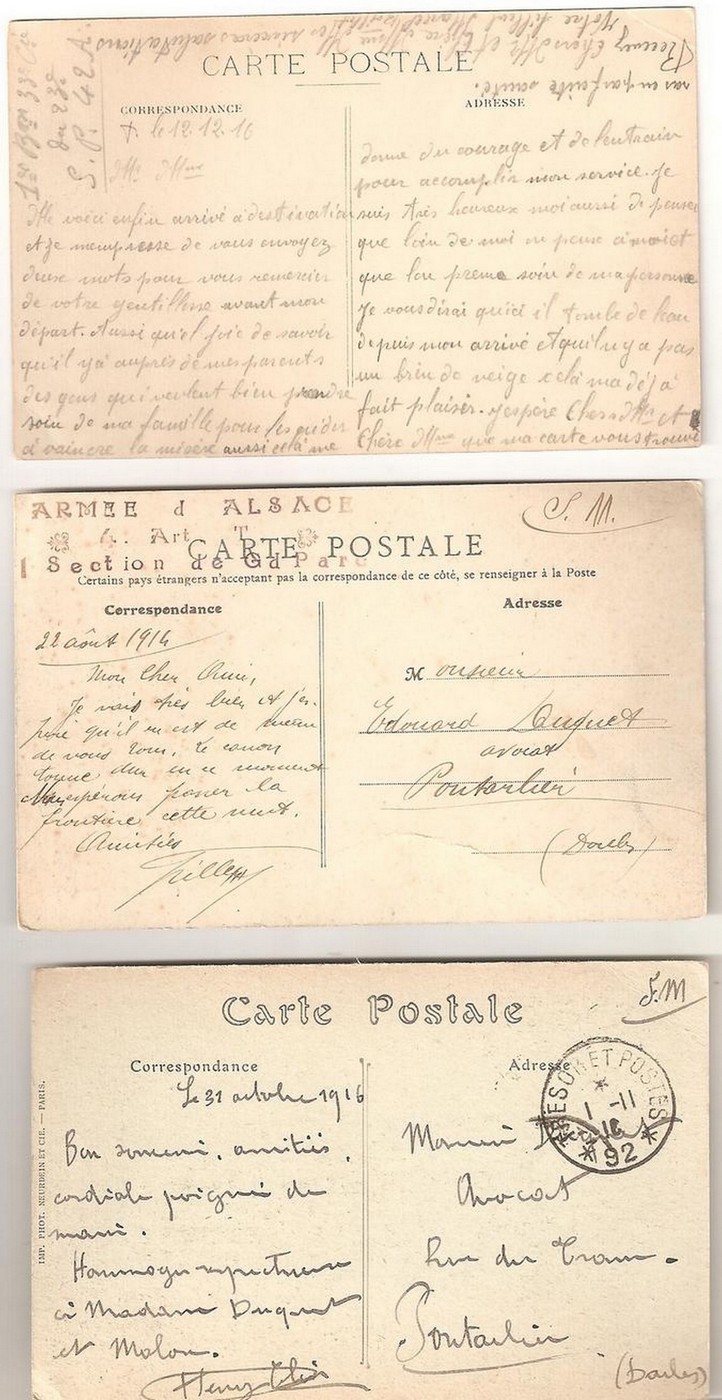 CARTE POSTALE
CORRESPONDANCE
ADRESSE
F. le 12.12.16
Mr Mme
Me voici enfin arrivé à destination
et je mempresse de vous envoyez
deux mots pour vous remercier
de votre gentillesse avant mon
départ. Aussi qu'el joie de savoir
qu'il y a auprès de mes parents
des gens qui veulent bien prendre
soin de ma famille pour les aider
à vaincre la misère aussi celà me
donne du courage et de l'entrain
pour accomplir mon service. Je
suis très heureux moi aussi de penser
que loin de moi on pense à moi et
que lon prenne soin de ma personne
Je vous dirai qu'ici il tombe de leau
depuis mon arrivé et quil ny a pas
un brin de neige celà ma déjà
fait plaisir. Jespère Cher Mr et
Chère Mme que ma carte vous trouve
ras en parfaite santé.
Recevez Cher Mr et Chère Mme
mes sincères salutations
Votre filleul Marcel
S.P. 42A
ARMEE d ALSACE
4. Art T.
Section de Gd Parc
S. M.
CARTE POSTALE
Certains pays étrangers n'acceptant pas la correspondance de ce côté, se renseigner à la Poste
Correspondance
Adresse
22 août 1914
Mon Cher Ami,
Je vais très bien et j'es-
père qu'il en est de même
de vous tous. Le canon
tonne dur en ce moment
Nous espérons passer la
frontière cette nuit.
Amitiés
Monsieur
Edouard Duquet
avocat
Pontarlier
(Doubs)
F.M
Carte Postale
Correspondance
Adresse
TRESOR ET POSTES
1 -11
16
* 92 *
Le 31 octobre 1916
Bon souvenir, amitiés,
cordiale poignée de
main.
Hommages respectueux
à Madame Duquet
et Malou.
Henry
Monsieur Duquet
Avocat
Rue du Tram.
Pontarlier
(Doubs)
IMP. PHOT. NEURDEIN ET CIE. — PARIS.